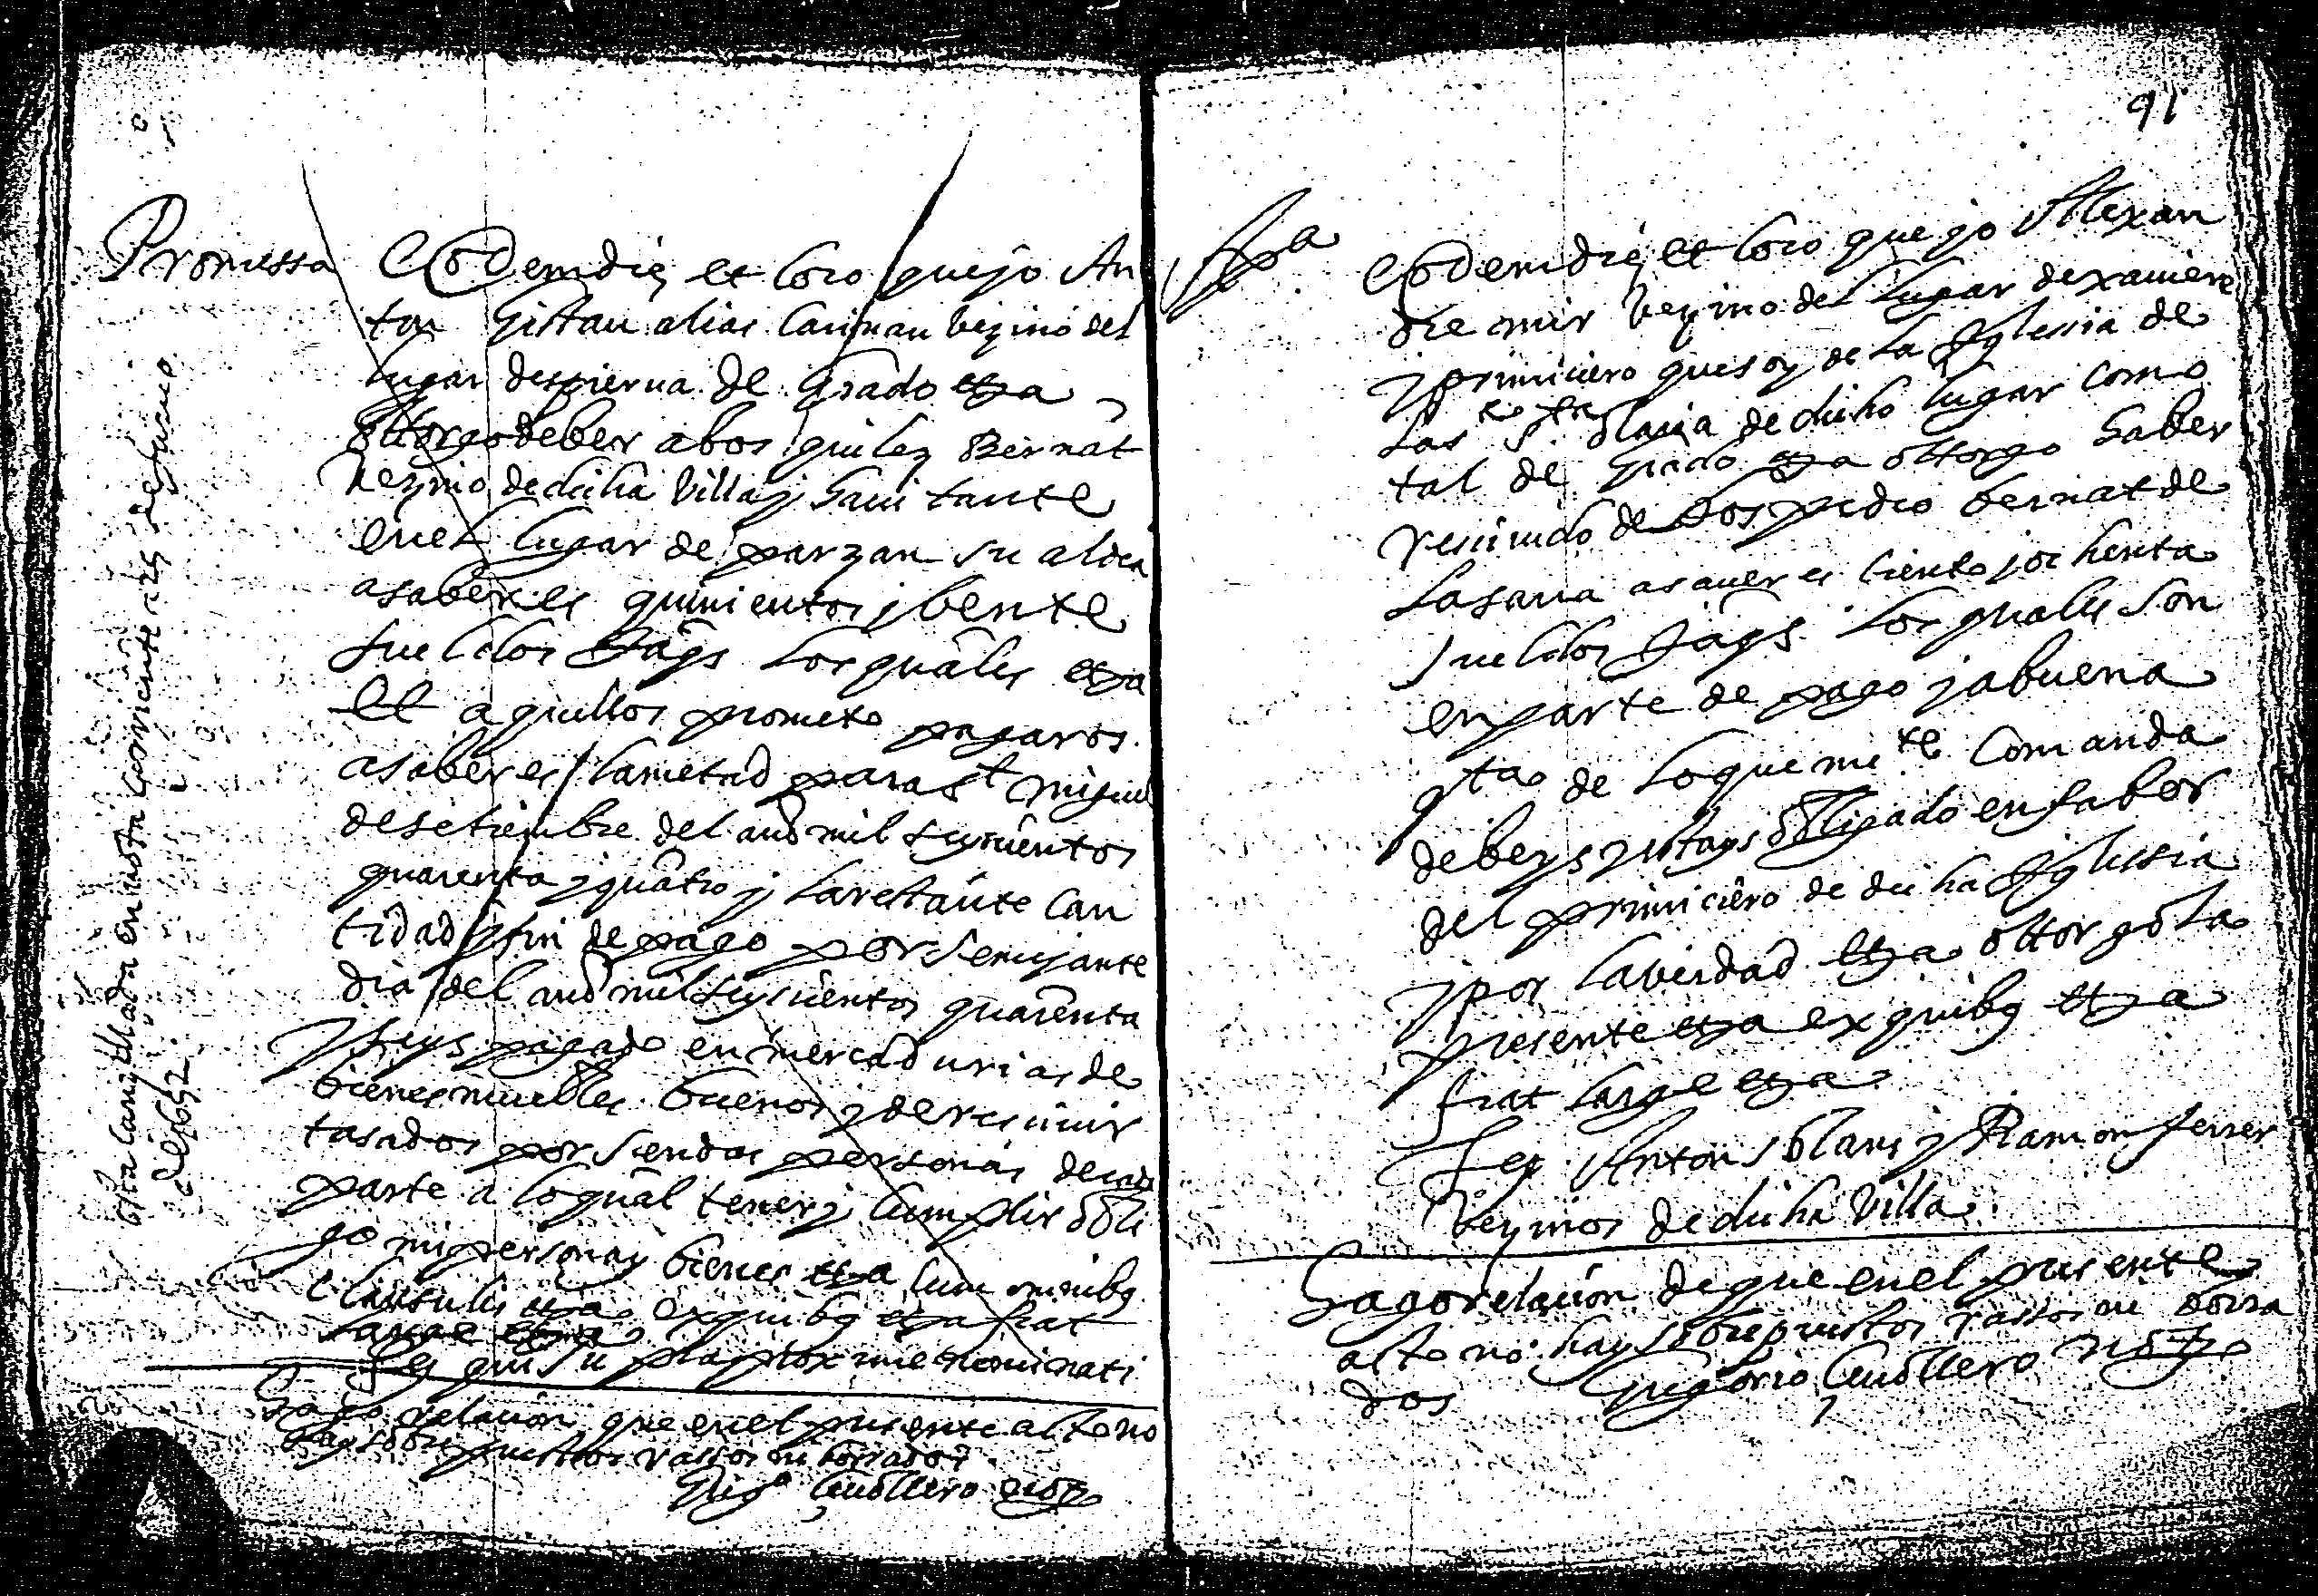 Promessa
Eodem die et loco que yo An
ton Gistau alias Cauinau bezino del
lugar despierua de Grado etza
ottorgo deber a bos guilez Bernat
Vezino de dicha Villa y hauitante
en el lugar de parzan su aldea
asaber es quinientos y bente
sueldos Jaqs los quales etza
et aquellos prometo pagaros
asaber es la metad para St miguel
de setiembre del año mil seyscientos
quarenta y quatro y la restante can
tidad y fin de pago por semejante
dia del año mil seyscientos quarenta
y seys pagado en mercadurias de
bienes muebles buenos y de resciuir
tasados por sendas personas de cada
parte a lo qual tener y cumplir obli
go mi persona y bienes etza cum omnibq
clausulis etza ex quibq etza fiat
large etza
Tes qui supra proxime nominati
Hago relacion que en el presente acto no
hay sobrepuestos rassos ni borrados
Grego Cauollero noto
esta cancellada en nota corriente a 25 de Junio
del 1652
91
Apa
Eodem die et loco que yo Alexan
dre mir bezino del lugar de xauierre
y primiciero que soy de la Yglessia de
Sta olaria de dicho lugar como
tal de Grado etza ottorgo haber
resciuido de bos pedro bernat de
Lasarra asauer es ciento y ochenta
sueldos Jaqs los quales son
en parte de pago y a buena
qta de lo que me te Comanda
debeys y estays obligado en fabor
del primiciero de dicha Yglessia
y por la verdad etza ottorgo la
presente etza ex quibq etza
fiat large etza
Tes Anton solans y Ramon ferrer
bezinos de dicha Villa
Hago relacion de que en el presente
acto no hay sobrepuestos rassos ni borra
dos Gregorio Cauollero noto